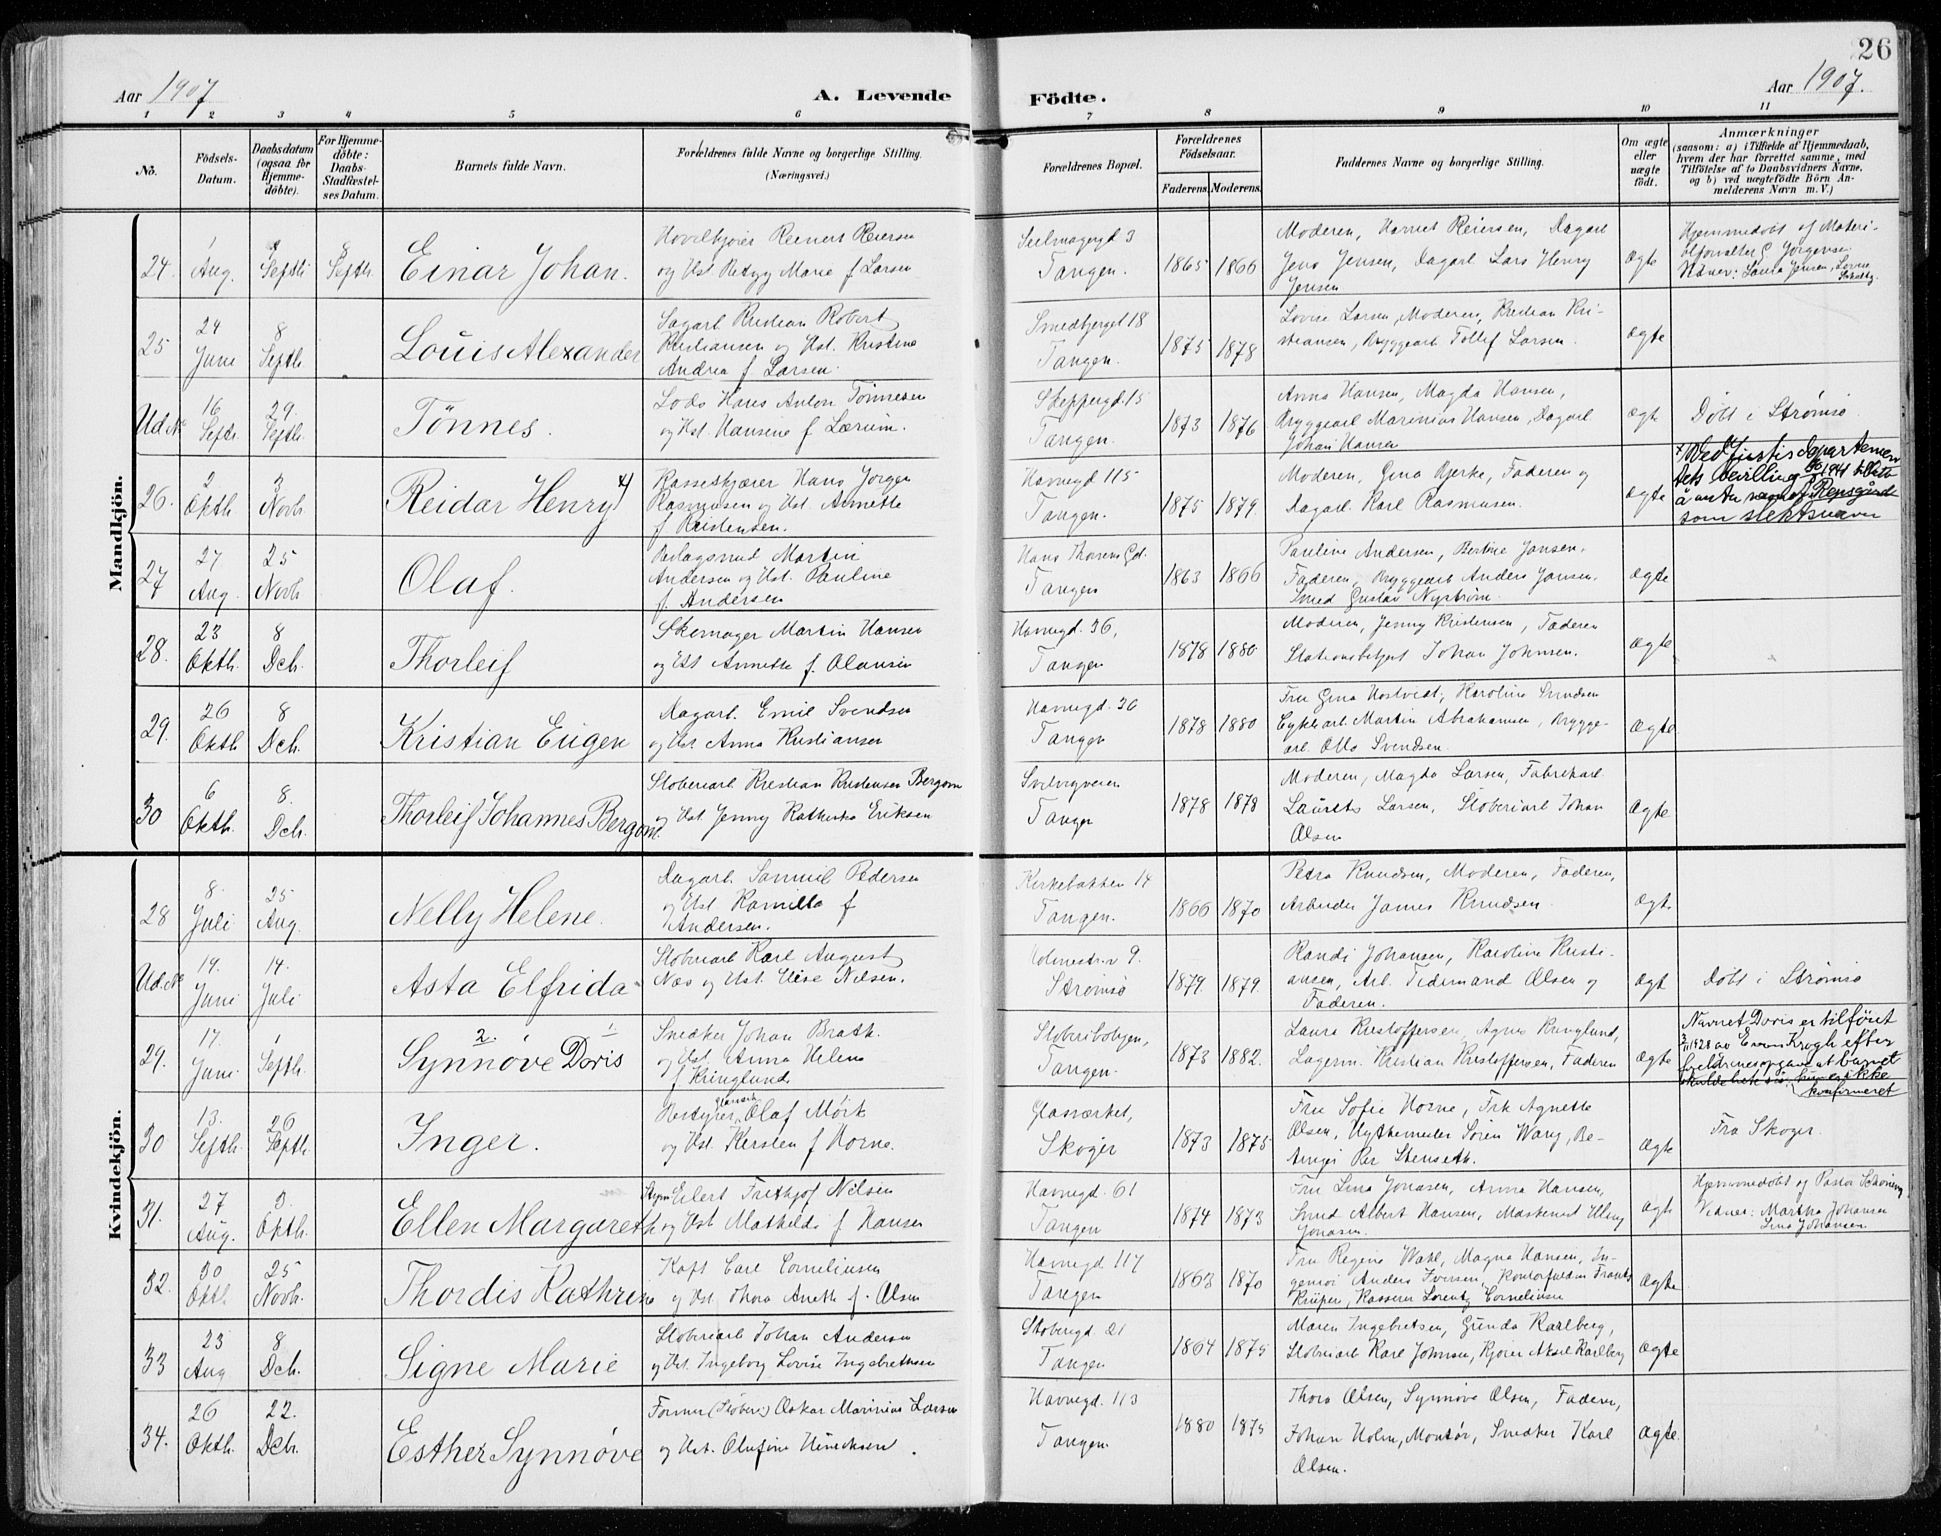 26
Aar 1907
A. Levende
Födte.
Aar 1907.
1 2 3 4 5 6 7 8 9 10 11
No.
Födsels-
Datum.
Daabsdatum
(ogsaa for
Hjemme-
döbte).
For Hjemme-
döbte:
Daabs-
Stadfæstel-
ses Datum.
Barnets fulde Navn.
Forældrenes fulde Navne og borgerlige Stilling.
(Næringsvei.)
Forældrenes Bopæl.
Forældrenes
Födselsaar.
Faderens. Moderens.
Faddernes Navne og borgerlige Stilling.
Om ægte
eller
uægte
födt.
Anmærkninger
(saasom: a) i Tilfælde af Hjemmedaab,
hvem der har forrettet samme, med
Tilföielse af to Daabsvidners Navne,
og b) ved uægtefödte Börn An-
melderens Navn m. V.)
Mandkjön.
24. 1 Aug. Septb 8 Septb. Einar Johan.
og Hst. Marie f Larsen
3
Tangen. 1865 1866
Moderen, Harriet Reiersen, Dagarb
Jens Jensen, Dagarb Lars Henry
Jensen
Ægte
25 24 June 8 Septb Louis Alexander
Robert
Kristiansen og Hst. Kristine
Andrea f Larsen.
Smedbjerget 18
Tangen. 1875 1878
Lovise Larsen, Moderen, Kristian Kri-
stiansen, Bryggearb Tollef Larsen.
Ægte
Ud.N. 16 Septr. 29. Septb. Tönnes.
Lods Hans Anton Tönnesen
og Hst. Hansine f Lærum.
Skeppergd. 15
Tangen. 1873 1876
Anna Hansen, Magda Hansen,
Bryggearb Marinius Hansen, Dagarb
Johan Hansen
Ægte
Döbt i Strömsö.
26. 2 Oktb 3 Novb. Reidar Henry x)
Hans Jörgen
Rasmussen og Hst Annette
f Kristensen.
Havnegd 115
Tangen. 1875 1879
Moderen, Gina Bjerke, Faderen og
Dagarb. Karl Rasmussen.
Ægte
x) Ved Justisdepartemen
tets bevilling 1941 tillatt
å anta navnet Rensgård
som slektsnavn
27 27 Aug. 25 Novb Olaf.
Martin
Andersen og Hst. Pauline
f. Andersen
Hans Gd.
Tangen 1863 1866
Pauline Andersen, Bertine Jansen,
Faderen, Bryggearb Anders Jansen.
Smed Gustav Nyström.
Ægte
28. 23 Oktb. 8 Dcb. Thorleif
Skomager Martin Hansen
og Hst Annette f. Olausen
Havnegd. 36,
Tangen 1878 1880
Moderen, Jenny Kristensen, Faderen
Stationsbetjent Johan Johnsen.
Ægte
29. 26 Oktb 8 Dcb. Kristian Eugen
Dagarb. Emil Svendsen
og Hst Anna Kristiansen
Havnegd. 36
Tangen 1878 1880
Fru Gina Karoline Svendsen
Martin Abrahamsen, Brygge-
arb. Otto Svendsen.
Ægte
30 6 Oktb. 8. Dcb. Thorleif Johannes Bergom.
Stoberiarb Kristian Kristensen Bergom
og Hst Jenny Katherka Eriksen
Svelvigveien
Tangen 1878 1878
Moderen, Magda Larsen, Fabrikarb.
Laurits Larsen, Stoberiarb Johan
Olsen
Ægte
Kvindekjön.
28 8. Juli 25 Aug. Nelly Helene.
Dagarb. Samuel Pedersen
og Hst. Kamilla f
Andersen.
Kirkebakken 14
Tangen. 1866 1870
Petra Knudsen, Moderen, Faderen,
Arbeider James Knudsen.
Ægte
Ud.N. 19. Juni 14. Juli Asta Elfrida
Stoberiarb Karl August
Næs og Hst. Nilsen.
9.
Strömsö 1879 1879.
Randi Johansen, Karoline Kristi-
ansen, Arb. Olsen og
Faderen.
Ægt
Döbt i Strömsö
29. 17. Juni 1 Septb. Synnöve 2. Doris 1
Snedker Johan Brath.
og Hst. Anna Helene
f Kringlund.
Stoberibolgen,
Tangen. 1873 1882.
Laura Kristoffersen, Agnes Kringlund,
Lagerm. Kristian Kristoffersen, Faderen
Ægte
Navnet Doris er tilföiet
1928 av Krogh efter
foreldrenes opgave at barnet
skulde hete så, hun er ikke
konfirmeret
30 13. Septb. 26 Septb. Inger.
Bestyrer Olaf Mörk
og Hst. Kirsten f Horne.
Glasværket,
Skoger 1873 1875
Fru Sofie Horne, Frk Agnette
Olsen, Hyttemester Sören Wang, Be-
Per Stenseth.
Ægte
Fra Skoger.
31. 27 Aug. 3. Oktb. Ellen Margareth
Eilert Frithjof Nilsen
og Hst Mathilde f. Hansen
Havnegd. 61
Tangen 1874 1873
Fru Lina Jonasen, Anna Hansen,
Smed Albert Hansen, Maskinist
Jonasen.
Ægte
Hjemmedöbt og Pastor
Vidner: Martha Johansen
Lina Johansen
32. 30 Oktb. 25 Novb. Thordis Kathrine
Kapt Carl Corneliusen
og Hst. Thora Anette f. Olsen
Havnegd 117
Tangen 1863 1870
Fru Regine Wahl, Magna Hansen, In-
geniör Anders Iversen, Frants
Krüper, Kasserer Lorentz Corneliusen
Ægte
33 23 Aug 8 Dcb. Signe Marie
Stoberiarb Johan Andersen
og Hst. Ingeborg Lovise Ingebretsen
Stoberigd 21
Tangen 1864 1875
Maren Ingebretsen, Gunda Karlberg,
Stoberiarb Karl Johnsen, Kjörer Aksel Karlberg
Ægte
34. 26 Oktb. 22. Dcb. Esther Synnöve
Former (Stoberi) Oskar Marinius Larsen
og Hst. Olufine Hinriksen.
Havnegd. 113
Tangen 1880 1875
Thora Olsen, Synnöve Olsen, Faderen,
Johan Holm, Montör, Snedker Karl
Olsen.
Ægte